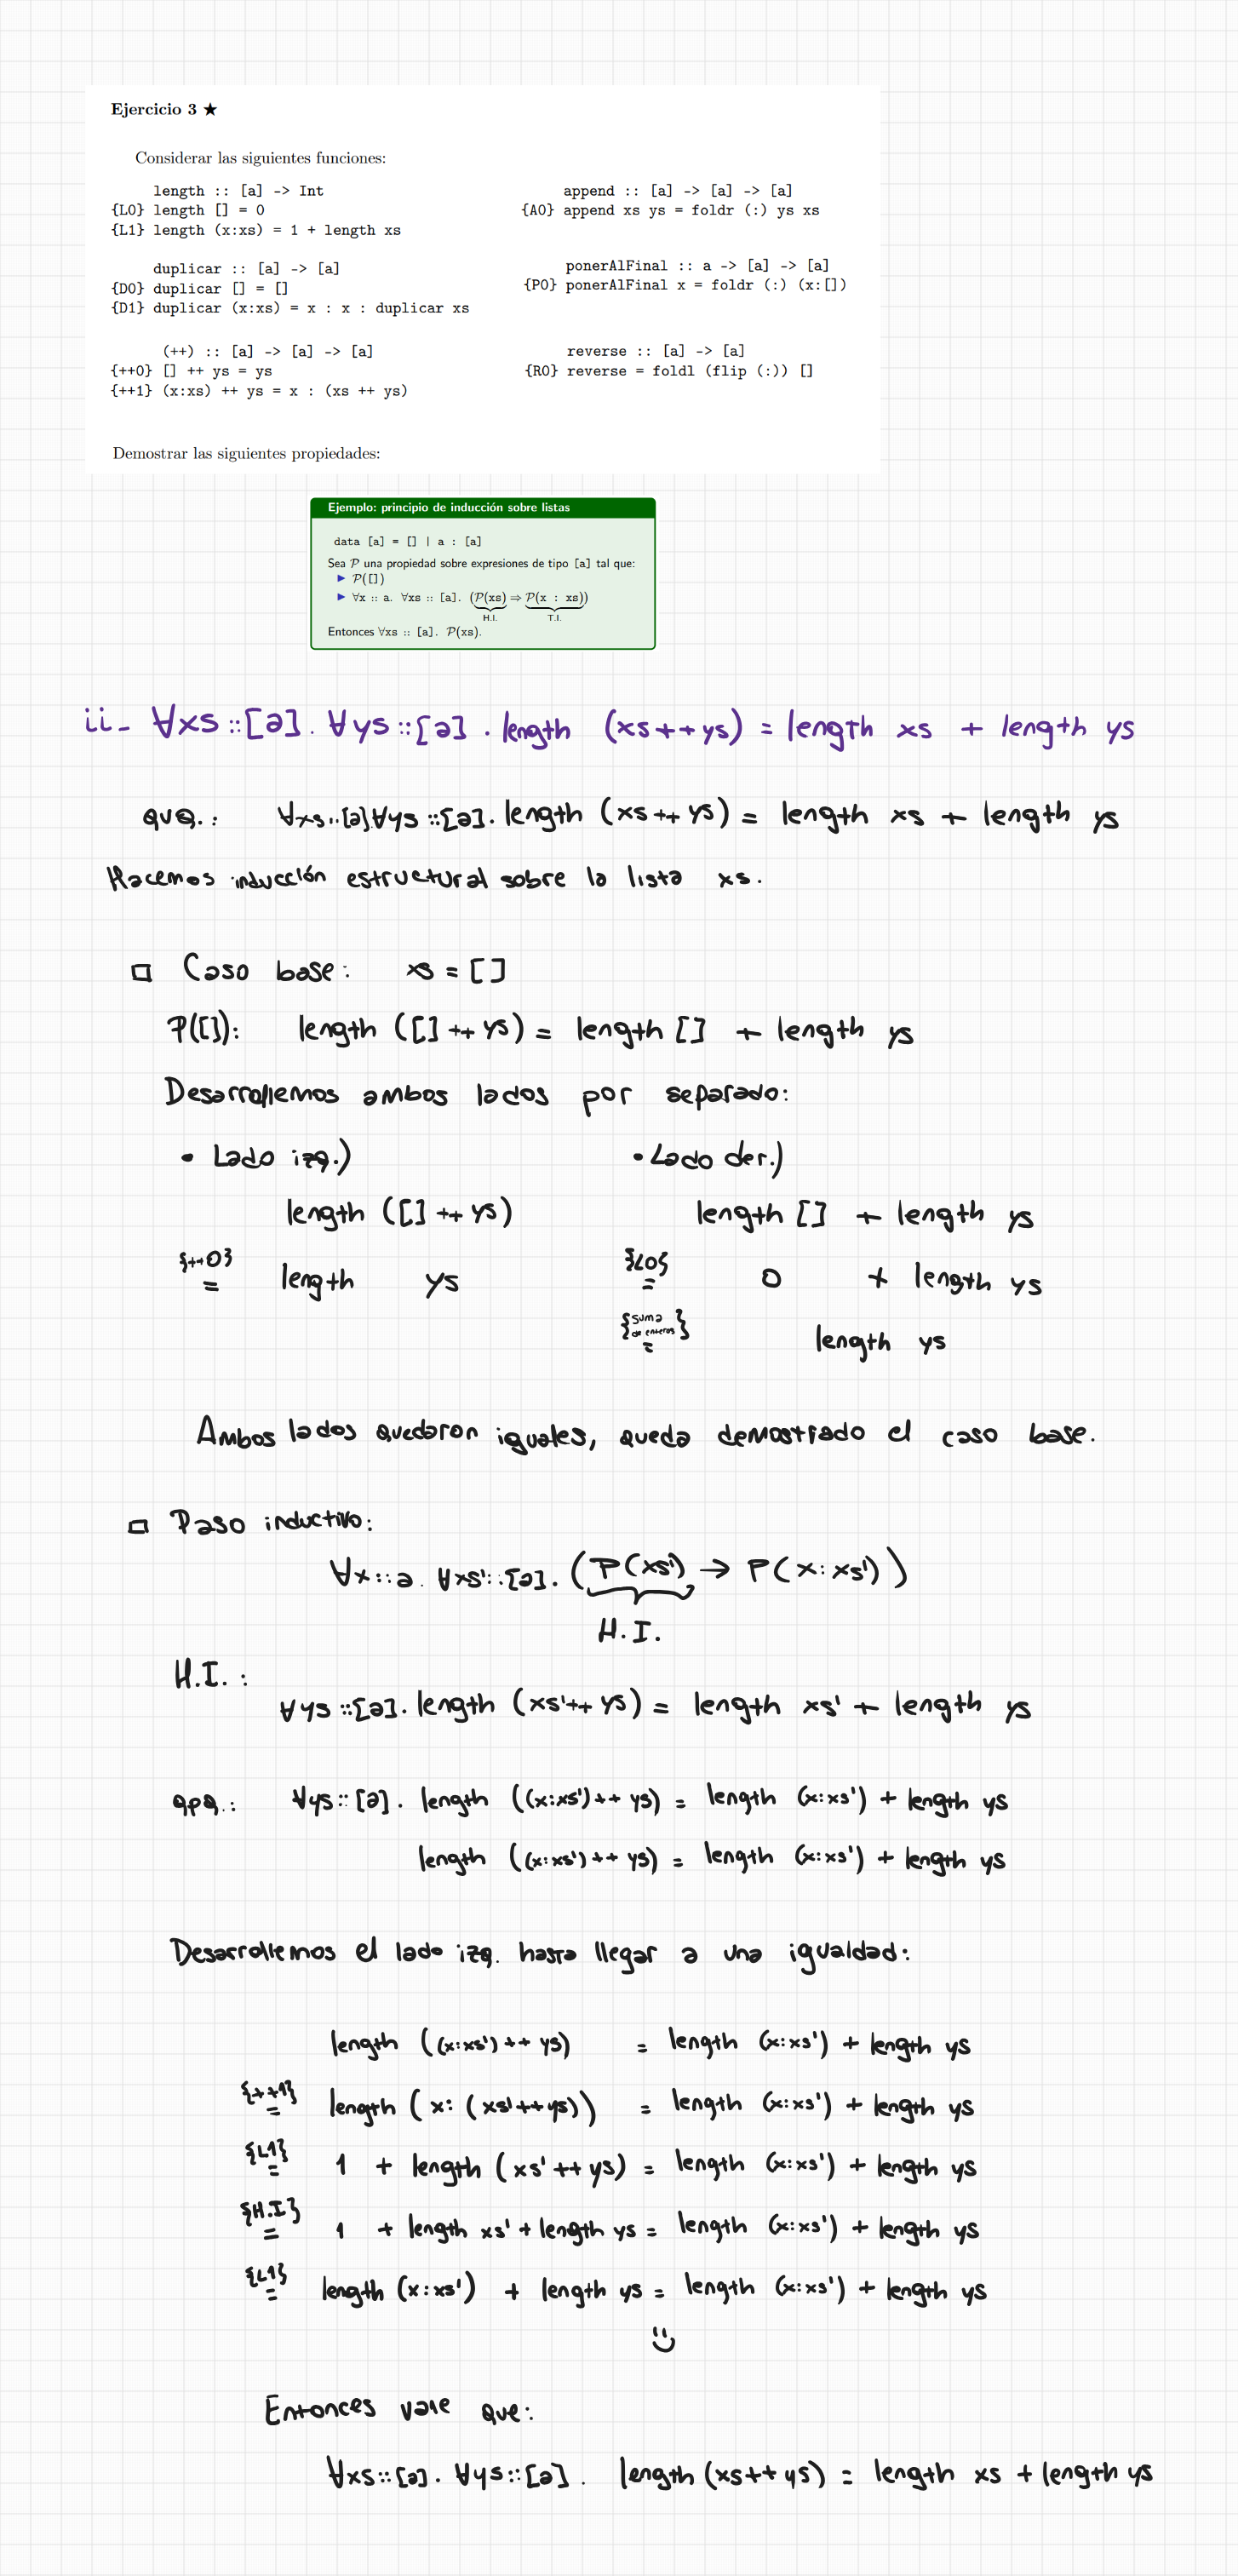 Ejercicio 3 ★
Considerar las siguientes funciones:
length :: [a] -> Int
{L0} length [] = 0
{L1} length (x:xs) = 1 + length xs
append :: [a] -> [a] -> [a]
{A0} append xs ys = foldr (:) ys xs
duplicar :: [a] -> [a]
{D0} duplicar [] = []
{D1} duplicar (x:xs) = x : x : duplicar xs
ponerAlFinal :: a -> [a] -> [a]
{P0} ponerAlFinal x = foldr (:) (x:[])
(++) :: [a] -> [a] -> [a]
{++0} [] ++ ys = ys
{++1} (x:xs) ++ ys = x : (xs ++ ys)
reverse :: [a] -> [a]
{R0} reverse = foldl (flip (:)) []
Demostrar las siguientes propiedades:
Ejemplo: principio de inducción sobre listas
data [a] = [] | a : [a]
Sea P una propiedad sobre expresiones de tipo [a] tal que:
▶ P([])
▶ ∀x :: a. ∀xs :: [a]. (P(xs) ⇒ P(x : xs))
H.I. T.I.
Entonces ∀xs :: [a]. P(xs).
ii- ∀xs::[a]. ∀ys::[a]. length (xs++ys) = length xs + length ys
qvq.: ∀xs::[a].∀ys::[a]. length (xs++ys) = length xs + length ys
Hacemos inducción estructural sobre la lista xs.
□ Caso base: xs = []
P([]): length ([]++ys) = length [] + length ys
Desarrollemos ambos lados por separado:
• Lado izq.)
length ([]++ys)
{++0}
= length ys
• Lado der.)
length [] + length ys
{L0}
= 0 + length ys
{suma
de enteros}
= length ys
Ambos lados quedaron iguales, queda demostrado el caso base.
□ Paso inductivo:
∀x::a. ∀xs'::[a]. (P(xs') → P(x:xs'))
H.I.
H.I.:
∀ys::[a]. length (xs'++ys) = length xs' + length ys
qpq.: ∀ys::[a]. length ((x:xs')++ys) = length (x:xs') + length ys
length ((x:xs')++ys) = length (x:xs') + length ys
Desarrollemos el lado izq. hasta llegar a una igualdad:
length ((x:xs')++ys) = length (x:xs') + length ys
{++1}
= length (x:(xs'++ys)) = length (x:xs') + length ys
{L1}
= 1 + length (xs'++ys) = length (x:xs') + length ys
{H.I}
= 1 + length xs' + length ys = length (x:xs') + length ys
{L1}
= length (x:xs') + length ys = length (x:xs') + length ys
Entonces vale que:
∀xs::[a]. ∀ys::[a]. length (xs++ys) = length xs + length ys